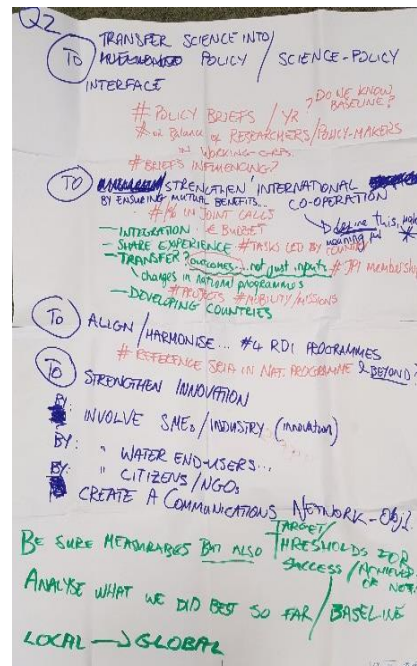 Q2
TRANSFER SCIENCE INTO
TO POLICY / SCIENCE-POLICY
INTERFACE
DO WE KNOW
BASELINE?
# POLICY BRIEFS / YR
# or Balance of RESEARCHERS/POLICY-MAKERS
in WORKING-GRPS.
# BRIEFS INFLUENCING?
TO STRENGTHEN INTERNATIONAL
BY ENSURING MUTUAL BENEFITS... CO-OPERATION
#/% IN JOINT CALLS
Define this,
meaning
— INTEGRATION · € BUDGET
— SHARE EXPERIENCE # TASKS LED BY COUNTRY
— TRANSFER? outcomes... not just inputs # JPI MEMBERSHIP
changes in national programmes
# PROJECTS # MOBILITY/MISSIONS
— DEVELOPING COUNTRIES
TO ALIGN / HARMONISE... #4 RDI PROGRAMMES
# REFERENCE SRIA IN NAT. PROGRAMME & BEYOND?
TO STRENGTHEN INNOVATION
BY:
INVOLVE SMEs/INDUSTRY (innovation)
BY: " WATER END-USERS...
BY: " CITIZENS/NGOs
CREATE A COMMUNICATIONS NETWORK - Obj?
BE SURE MEASURABLES BUT ALSO TARGET/
THRESHOLDS FOR
SUCCESS / ACHIEVED
OR NOT.
ANALYSE WHAT WE DID BEST SO FAR / BASELINE
LOCAL → GLOBAL